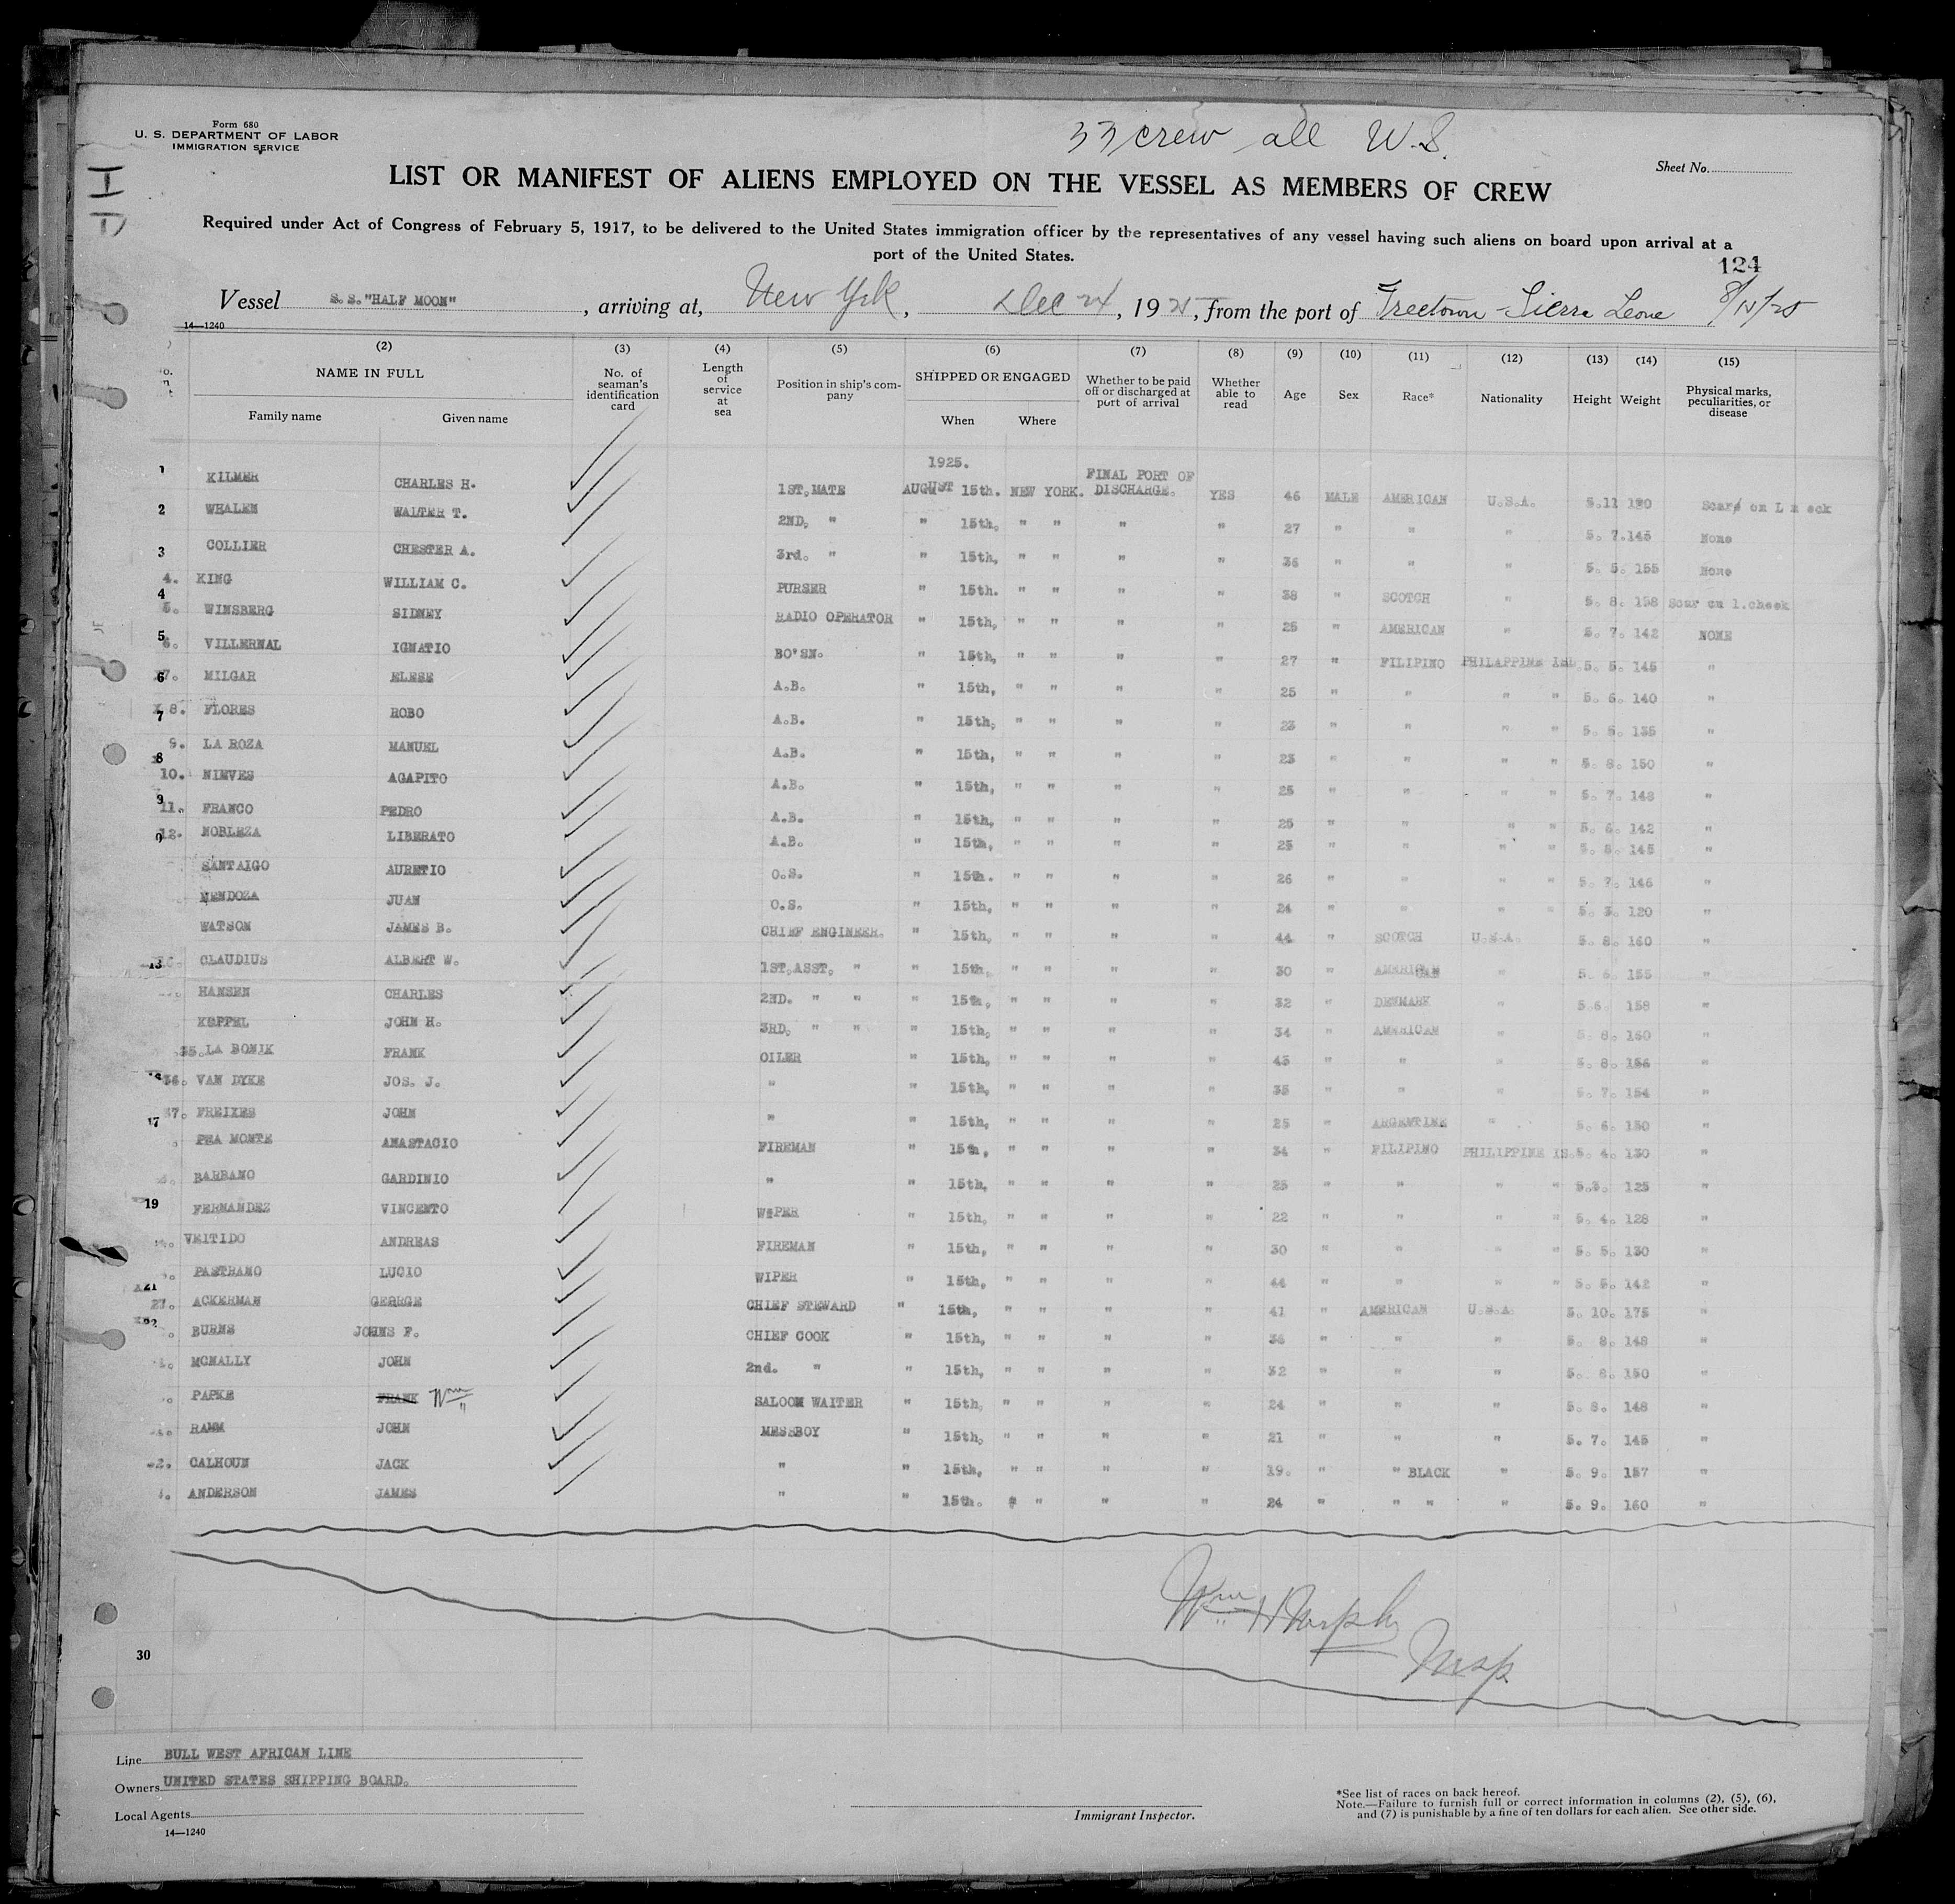 Form 680
U. S. DEPARTMENT OF LABOR
IMMIGRATION SERVICE
33 crew all W.S.
Sheet No.
LIST OR MANIFEST OF ALIENS EMPLOYED ON THE VESSEL AS MEMBERS OF CREW
Required under Act of Congress of February 5, 1917, to be delivered to the United States immigration officer by the representatives of any vessel having such aliens on board upon arrival at a
port of the United States.
124
Vessel S.S."HALF MOON", arriving at, New York, Dec 24, 1925, from the port of Freetown - Sierra Leone
14—1240
(2) (3) (4) (5) (6) (7) (8) (9) (10) (11) (12) (13) (14) (15)
NAME IN FULL Family name Given name No. of seaman's identification card Length of service at sea Position in ship's company SHIPPED OR ENGAGED When Where Whether to be paid off or discharged at port of arrival Whether able to read Age Sex Race* Nationality Height Weight Physical marks, peculiarities, or disease
1925.
1 KILMER CHARLES H. 1ST.MATE AUGUST 15th. NEW YORK. FINAL PORT OF DISCHARGE. YES 46 MALE AMERICAN U.S.A. 5.11 190 Scar on L neck
2 WHALEN WALTER T. 2ND. " " 15th, " " " " 27 " " " 5. 7. 145 None
3 COLLIER CHESTER A. 3rd. " " 15th, " " " " 36 " " " 5. 5. 155 None
4. KING WILLIAM C. PURSER " 15th. " " " " 38 " SCOTCH " 5. 8. 158 Scar on l.cheek
4
5. WINSBERG SIDNEY RADIO OPERATOR " 15th, " " " " 25 " AMERICAN " 5. 7. 142 NONE
5
6. VILLERNAL IGNATIO BO'SN. " 15th, " " " " 27 " FILIPINO PHILAPPINE ISD. 5. 5. 145 "
6 7. MILGAR ELESE A.B. " 15th, " " " " 25 " " " " 5. 6. 140 "
8. FLORES ROBO A.B. " 15th, " " " " 23 " " " " 5. 5. 135 "
7
9. LA ROZA MANUEL A.B. " 15th, " " " " 23 " " " " 5. 8. 150 "
8
10. NIEVES AGAPITO A.B. " 15th, " " " " 25 " " " " 5. 7. 148 "
9
11. FRANCO PEDRO A.B. " 15th, " " " " 25 " " " " 5. 6. 142 "
12. NOBLEZA LIBERATO A.B. " 15th, " " " " 25 " " " " 5. 8. 145 "
SANTAIGO AURETIO O.S. " 15th. " " " " 26 " " " " 5. 7. 146 "
MENDOZA JUAN O.S. " 15th, " " " " 24 " " " " 5. 3. 120 "
WATSON JAMES B. CHIEF ENGINEER. " 15th, " " " " 44 " SCOTCH U.S.A. 5. 8. 160 "
13 CLAUDIUS ALBERT W. 1ST.ASST. " " 15th, " " " " 30 " AMERICAN " 5. 6. 155 "
HANSEN CHARLES 2ND. " " " 15th, " " " " 32 " DENMARK " 5.6 158 "
KEPPEL JOHN H. 3RD. " " " 15th, " " " " 34 " AMERICAN " 5. 8. 160 "
35. LA BONIK FRANK OILER " 15th, " " " " 43 " " " 5. 8. 156 "
36. VAN DYKE JOS. J. " " 15th, " " " " 35 " " " 5. 7. 154 "
37. FREIXES JOHN " " 15th, " " " " 25 " ARGENTINE " 5. 6. 150 "
17
PEA MONTE ANASTACIO FIREMAN " 15th, " " " " 34 " FILIPINO PHILIPPINE IS. 5. 4. 130 "
BARBANO GARDINIO " " 15th, " " " " 25 " " " " 5.3. 125 "
19 FERNANDEZ VINCENTO WIPER " 15th, " " " " 22 " " " " 5. 4. 128 "
VEITIDO ANDREAS FIREMAN " 15th, " " " " 30 " " " " 5. 5. 130 "
PASTRANO LUCIO WIPER " 15th, " " " " 44 " " " " 5. 5. 142 "
21
27. ACKERMAN GEORGE CHIEF STEWARD " 15th, " " " " 41 " AMERICAN U.S.A. 5. 10. 175 "
BURNS JOHNS F. CHIEF COOK " 15th, " " " " 36 " " " 5. 8. 148 "
MCNALLY JOHN 2nd. " " 15th, " " " " 32 " " " 5. 8. 150 "
PAPKE FRANK Wm SALOON WAITER " 15th, " " " " 24 " " " 5. 8. 148 "
RAMM JOHN MESSBOY " 15th, " " " " 21 " " " 5. 7. 145 "
CALHOUN JACK " " 15th, " " " " 19. " " BLACK " 5. 9. 157 "
ANDERSON JAMES " " 15th. " " " " 24 " " " " 5. 9. 160 "
Wm H Murphy
Insp.
30
Line BULL WEST AFRICAN LINE
Owners UNITED STATES SHIPPING BOARD.
Local Agents
14—1240
Immigrant Inspector.
*See list of races on back hereof.
Note.—Failure to furnish full or correct information in columns (2), (5), (6),
and (7) is punishable by a fine of ten dollars for each alien. See other side.